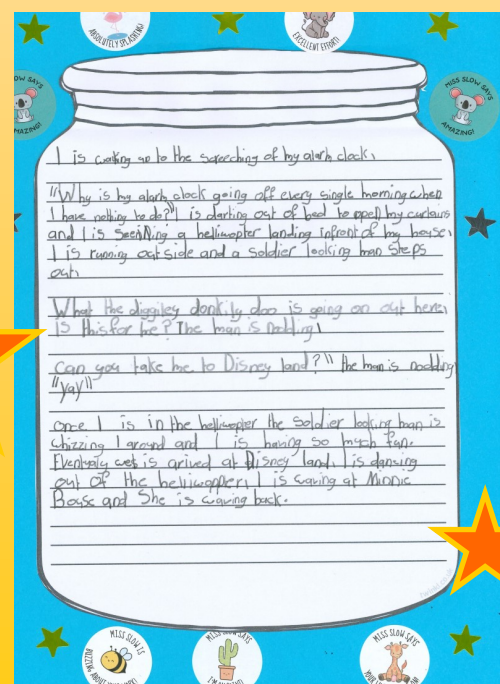 ABSOLUTELY SPLASHING!
EXCELLENT EFFORT!
OW SAYS
AMAZING!
MISS SLOW SAYS
AMAZING!
I is waking up to the screeching of my alarm clock,
"Why is my alarm clock going off every single morning when
I have nothing to do?" I is darting out of bed to my curtains
and I is a hellicopter landing infront of my house,
I is running outside and a soldier looking man steps
out,
What the diggiley donkily doo is going on out here,
Is this for me? The man is nodding!
Can you take me to Disney land?" the man is nodding
"Yay"
once I is in the hellicopter the soldier looking man is
whizzing I around and I is having so much fun.
Eventualy is arived at Disney land, I is dancing
out of the I is waving at Minnie
Bouse and She is waving back.
MISS SLOW IS
BUZZING
MISS SLOW SAYS
MISS SLOW SAYS